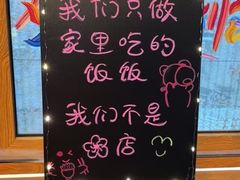 我们只做
家里吃的
饭饭
我们不是
店